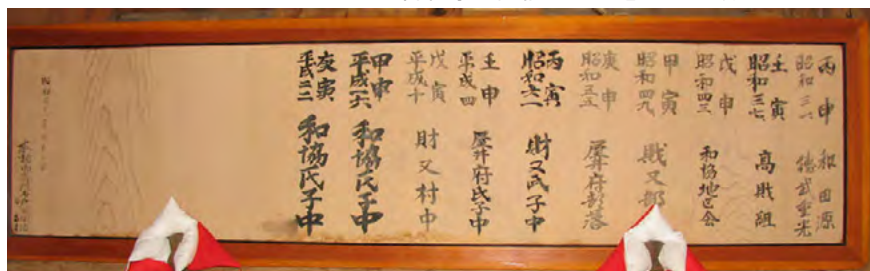 丙申
昭和三一
和田源
徳武重光
壬寅
昭和三七
高戝組
戊申
昭和四三
和協地区会
甲寅
昭和四九
戝又部
庚申
昭和五五
屋井府部落
丙寅
昭和六一
財又氏子中
壬申
平成四
屋井府氏子中
戊寅
平成十
財又村中
甲申
平成十六
和協氏子中
庚寅
平成二二
和協氏子中